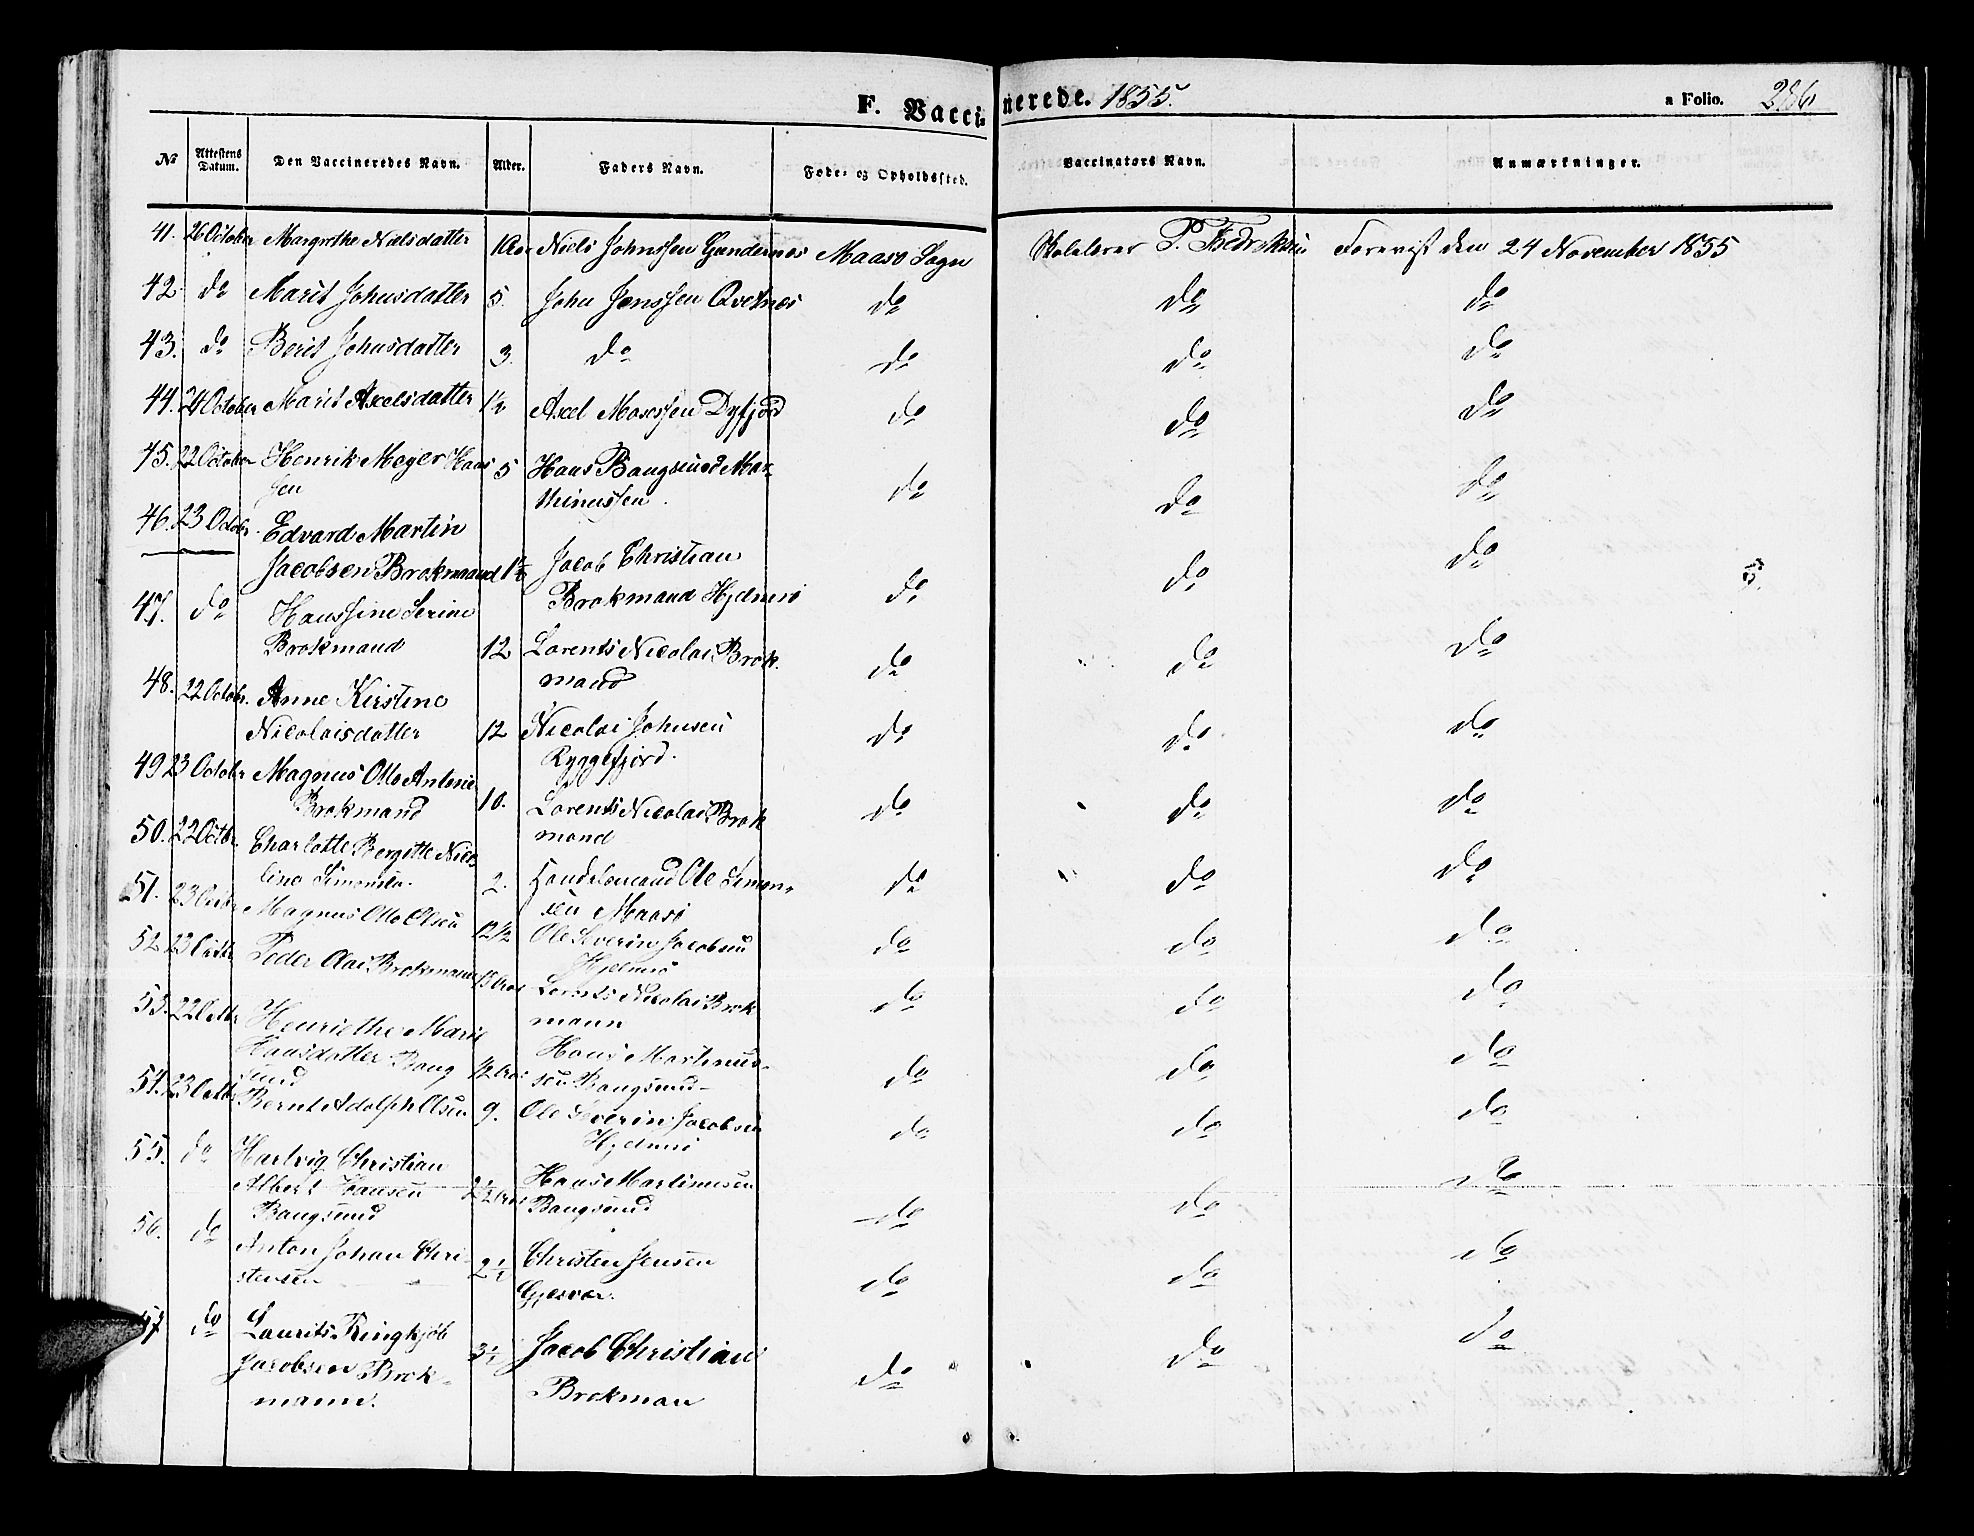 F. Vaccinerede. 1855.
a Folio. 286
No Attestens Datum. Den Vaccineredes Navn. Alder. Faders Navn. Føde- og Opholdssted. Vaccinators Navn. Anmærkninger.
41. 26 October Margrethe Nielsdatter Niels Johnssen Maasø Sogn Skolelærer P. Forevist den 24 November 1855
42. do Marit Johnsdatter 5. John Jenssen Qvetnes do do do
43. do Berit Johnsdatter 3. do do do do
44. 24 October Marit Axelsdatter 1½ Axel Mosessen Dyfjord do do do
45. 22 October Henrik Meyer Hans 5 Hans Bangsund Mar-
sen thinussen do do do
46. 23 Octobr. Edvard Martin
Jacobsen Brokmand 1½ Jacob Christian
Brokmand Hjelmsø do do do
47. do Hanssine Serine
Brokmand 12 Lorents Nicolai Brok-
mand do do do
48. 22 Octobr. Anne Kirstine
Nicolaisdatter 12 Nicolai Johnsen
Ryggefjord. do do do
49 23 Octobr Magnus Otto Antoni
Brokmand 10. Lorents Nicolai Brok
mand do do do
50. 22 Octbr. Charlotte Bergitte Nico
line Simonsen. 2. Handelsmand Ole Simon-
sen Maasø do do do
51. 23 Octbr Magnus Otto Olsen 12½ Ole Severin Jacobsen
Hjelmsø do do do
52. 23 Octbr Peder Olai Brokmann Lorents Nicolai Brok
mann do do do
53. 22 Octbr Henriethe Marie
Hansdatter Bang
sund Hans Martinus-
sen Bangsund do do do
54. 23 Octbr Bernt Adolph Olsen 9. Ole Severin Jacobsen
Hjelmsø do do do
55. do Hartvig Christian
Albert Hansen
Bangsund 2½ Hans Martinusen
Bangsund do do do
56. do Anton Johan Chri-
stensen 2½ Christen Jensen
Gjesvær. do do do
57 do Laurits Ringkjøb
Jacobsen Brok-
mann. 3½ Jacob Christian
Brokman do do do